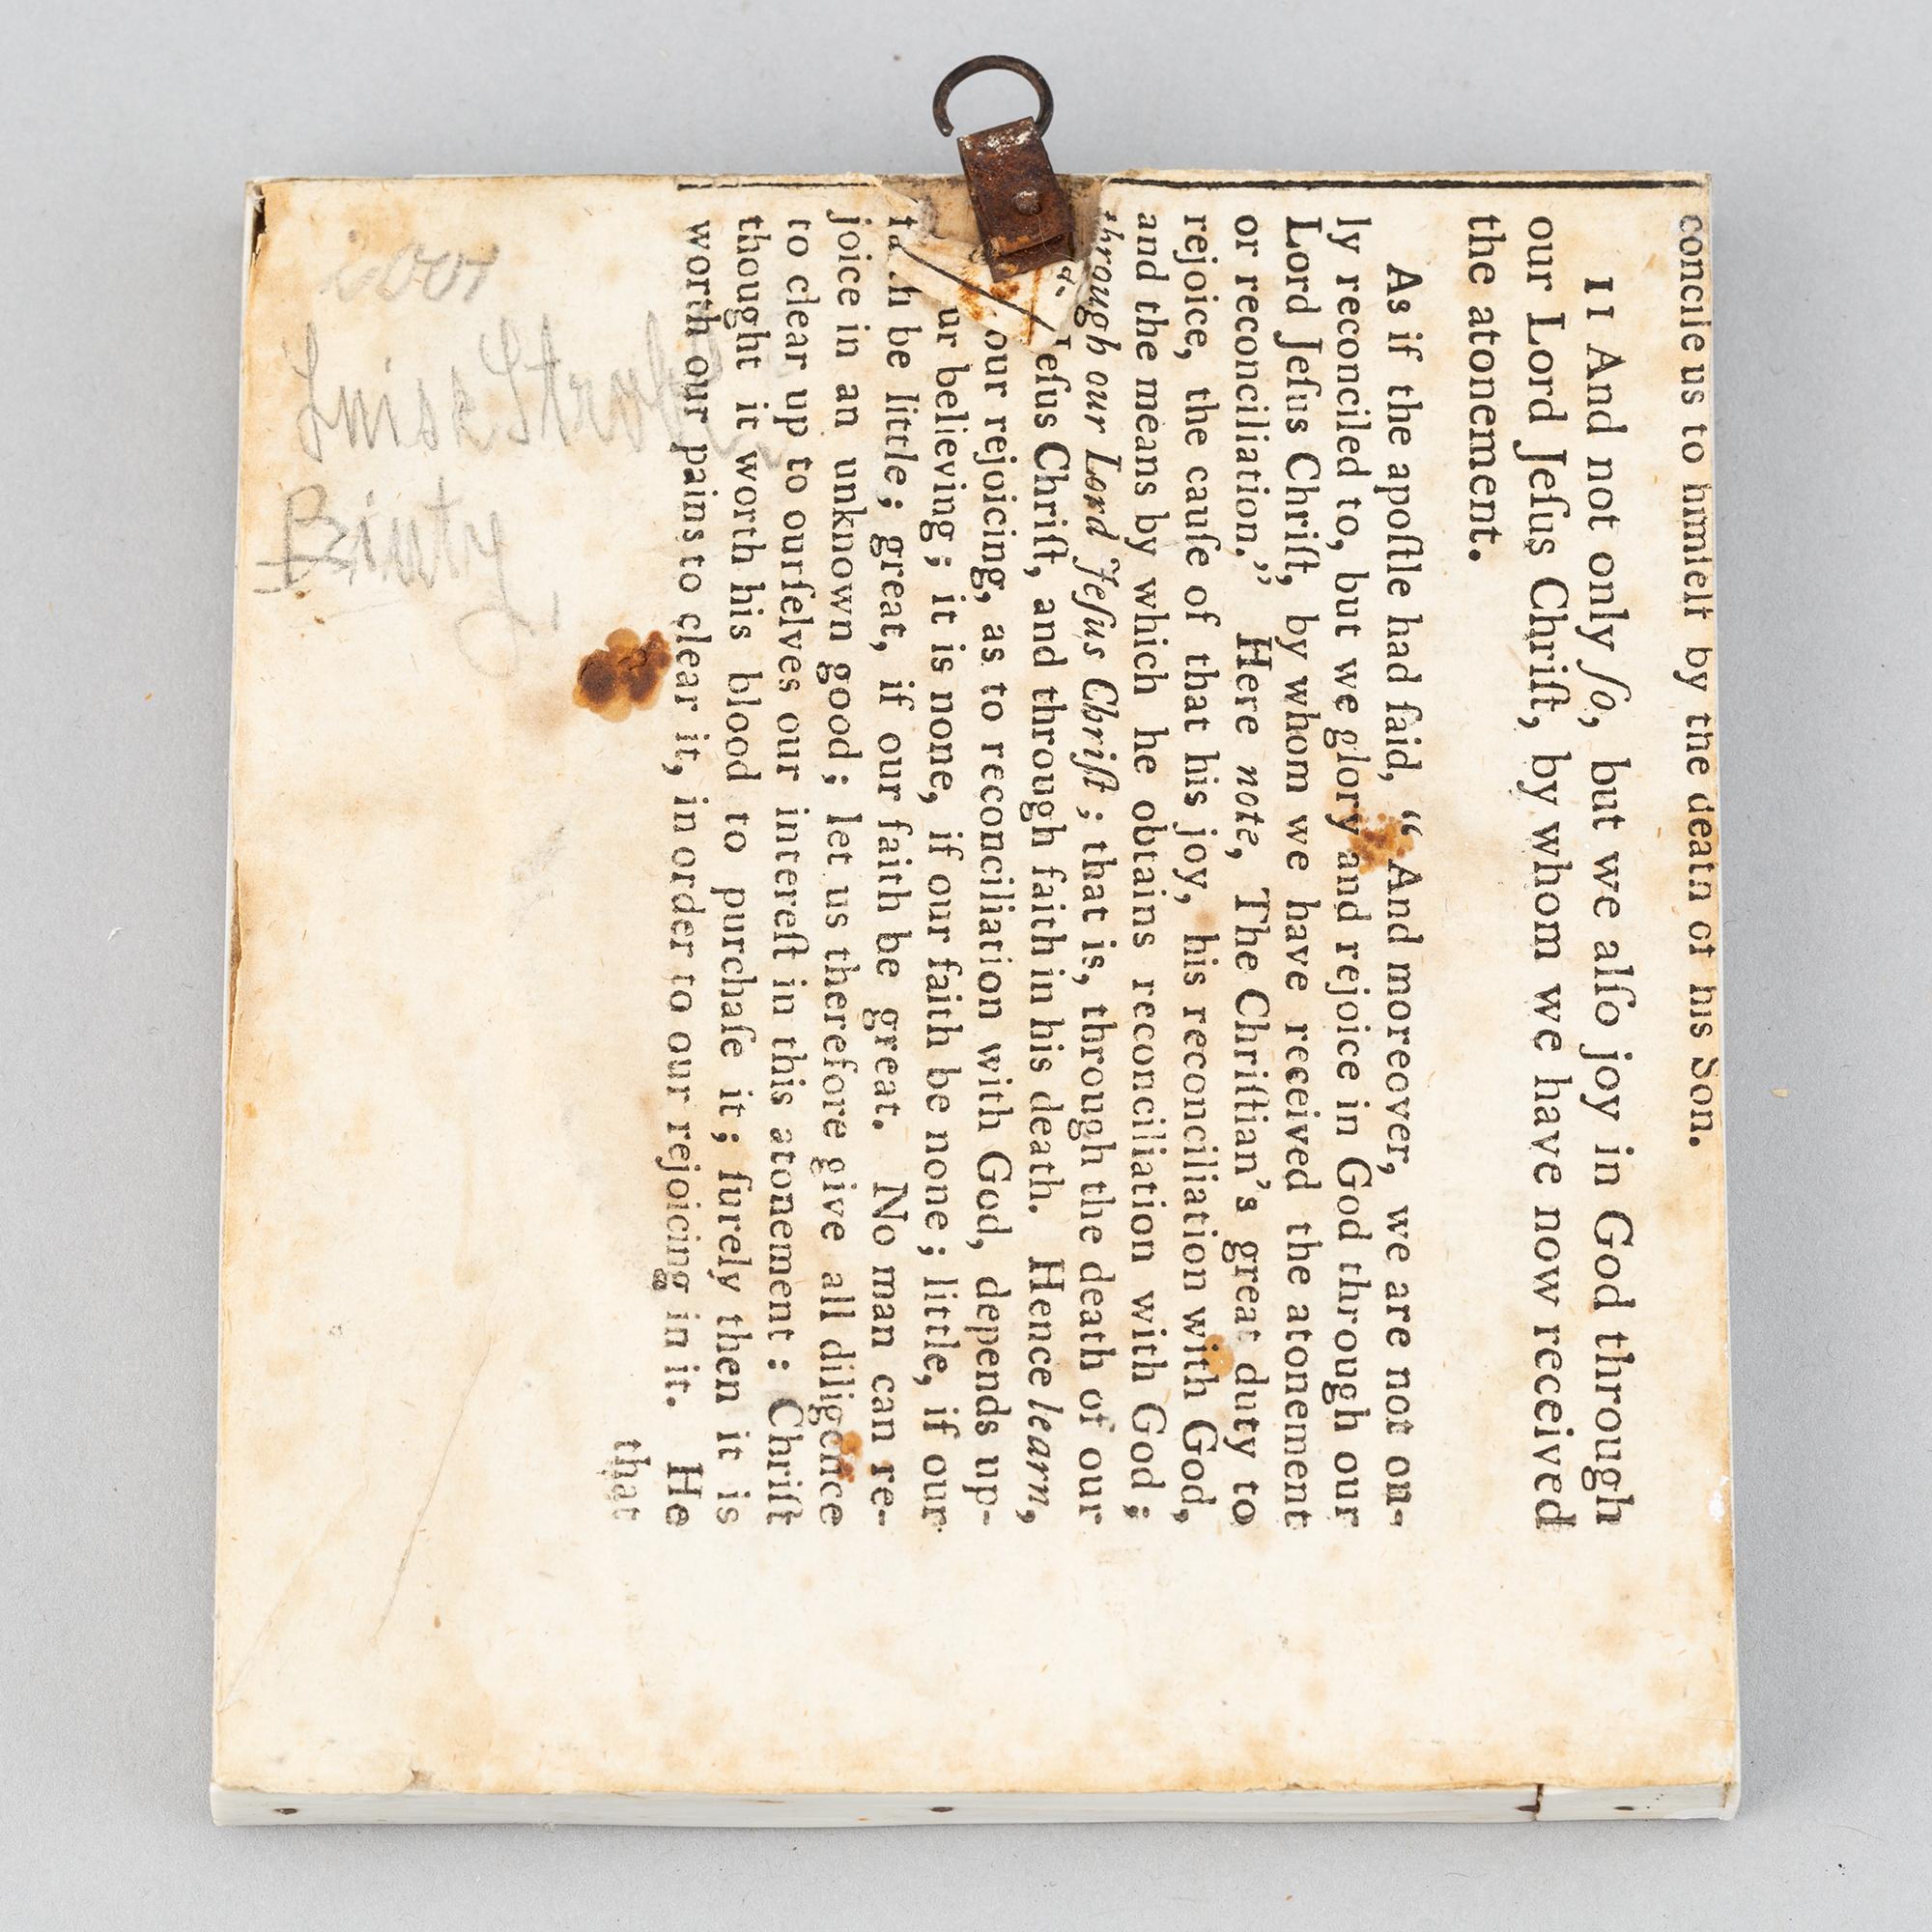 concile us to himself by the death of his Son.
11 And not only ſo, but we alſo joy in God through
our Lord Jeſus Chriſt, by whom we have now received
the atonement.
As if the apoſtle had ſaid, “ And moreover, we are not on-
ly reconciled to, but we glory and rejoice in God through our
Lord Jeſus Chriſt, by whom we have received the atonement
or reconciliation.” Here note, The Chriſtian's great duty to
rejoice, the cauſe of that his joy, his reconciliation with God,
and the means by which he obtains reconciliation with God;
through our Lord Jeſus Chriſt; that is, through the death of our
Jeſus Chriſt, and through faith in his death. Hence learn,
our rejoicing, as to reconciliation with God, depends up-
ur believing; it is none, if our faith be none; little, if our
be little; great, if our faith be great. No man can re-
joice in an unknown good; let us therefore give all diligence
to clear up to ourſelves our intereſt in this atonement: Chriſt
thought it worth his blood to purchaſe it; ſurely then it is
worth our pains to clear it, in order to our rejoicing in it. He
that